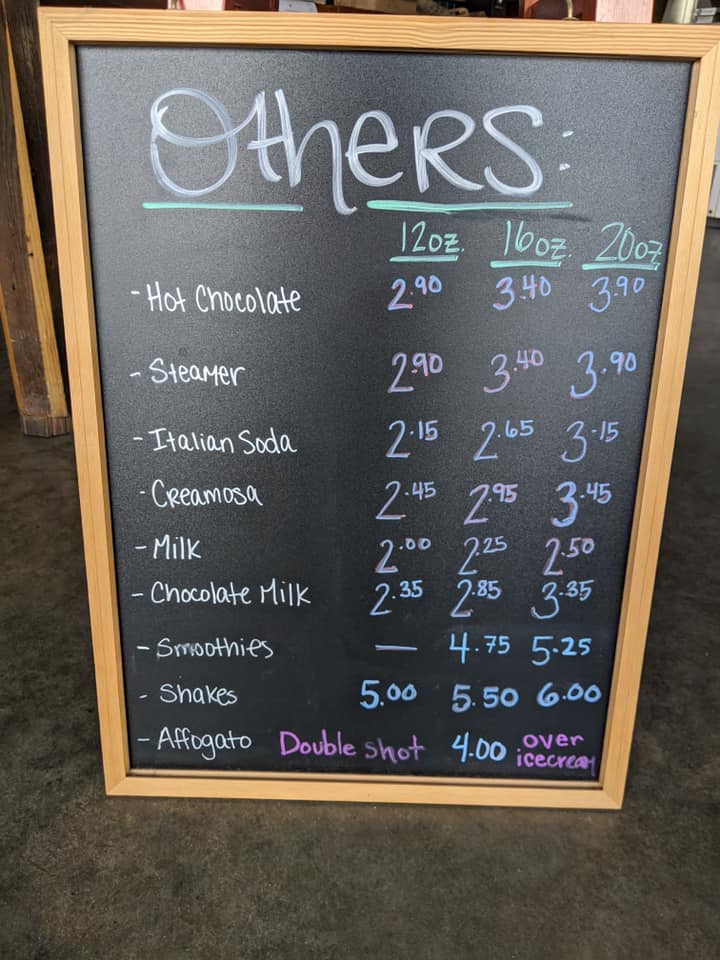 OthERS:
12oz. 16oz. 20oz
- Hot Chocolate 2.90 3.40 3.90
- Steamer 2.90 3.40 3.90
- Italian Soda 2.15 2.65 3.15
- Creamosa 2.45 2.95 3.45
- Milk 2.00 2.25 2.50
- Chocolate Milk 2.35 2.85 3.35
- Smoothies — 4.75 5.25
- Shakes 5.00 5.50 6.00
- Affogato Double shot 4.00 over
icecream